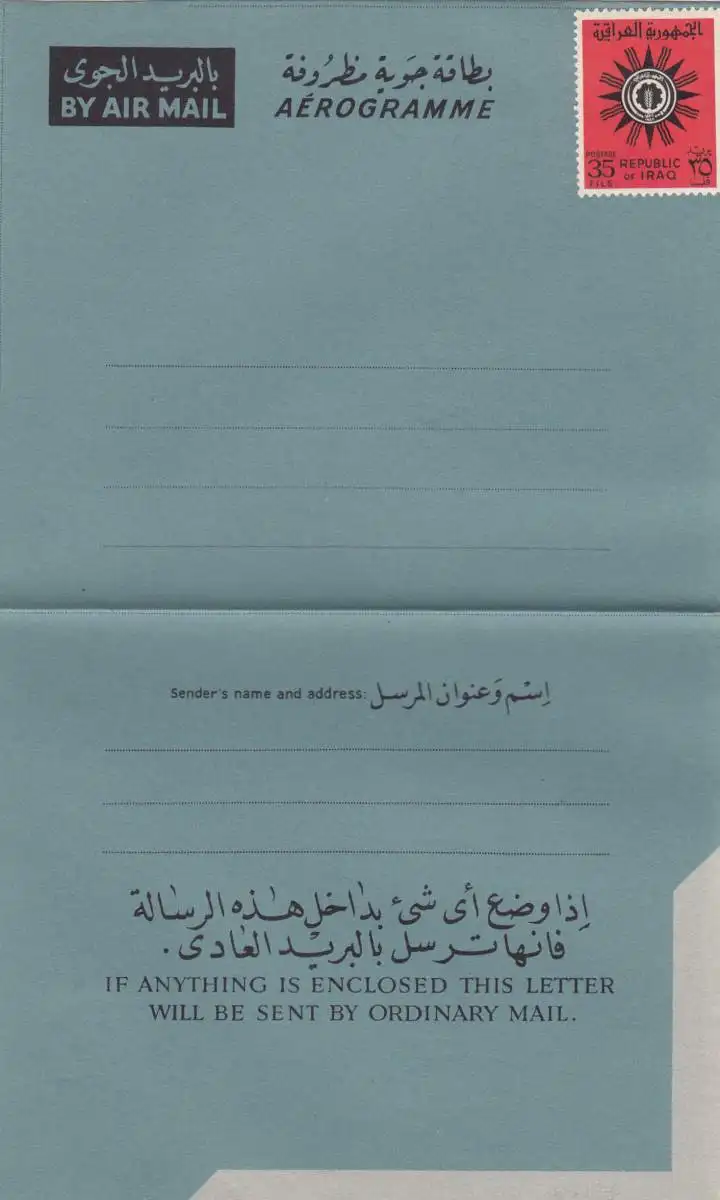 بالبريد الجوى
BY AIR MAIL
بطاقة جَوية مظرُوفة
AÉROGRAMME
الجمهورية العراقية
POSTAGE
35
FILS
REPUBLIC
OF IRAQ
بريد
٣٥
فلس
Sender's name and address: اِسْم وَعنوان المرسل
اِذا وضع أى شئ بداخل هٰذه الرسالة
فانها ترسل بالبريد العادى .
IF ANYTHING IS ENCLOSED THIS LETTER
WILL BE SENT BY ORDINARY MAIL.